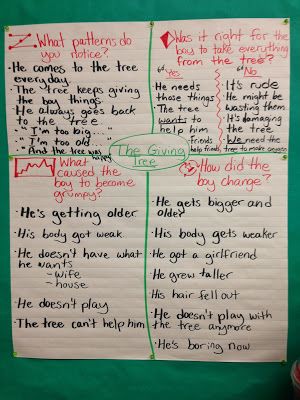 What patterns do
you notice?
• He comes to the tree
everyday.
• The tree keeps giving
the boy things.
• He always goes back
to the tree
" I'm too big.... "
" I'm too old... "
" And the tree was
happy
Was it right for the
boy to take everything
from the tree?
Yes
He needs
those things
The tree
wants to
help him
friends
help friends
No
It's rude
He might be
wasting them
It's damaging
the tree
We need the
tree to make oxygen
The Giving
Tree
What
caused the
boy to become
grumpy?
• He's getting older
• His body got weak.
• He doesn't have what
he wants
- wife
- house
• He doesn't play
• The tree can't help him
How did the
boy change?
• He gets bigger and
older
• His body gets weaker
• He got a girlfriend
• He grew taller
• His hair fell out
• He doesn't play with
the tree anymore
• He's boring now